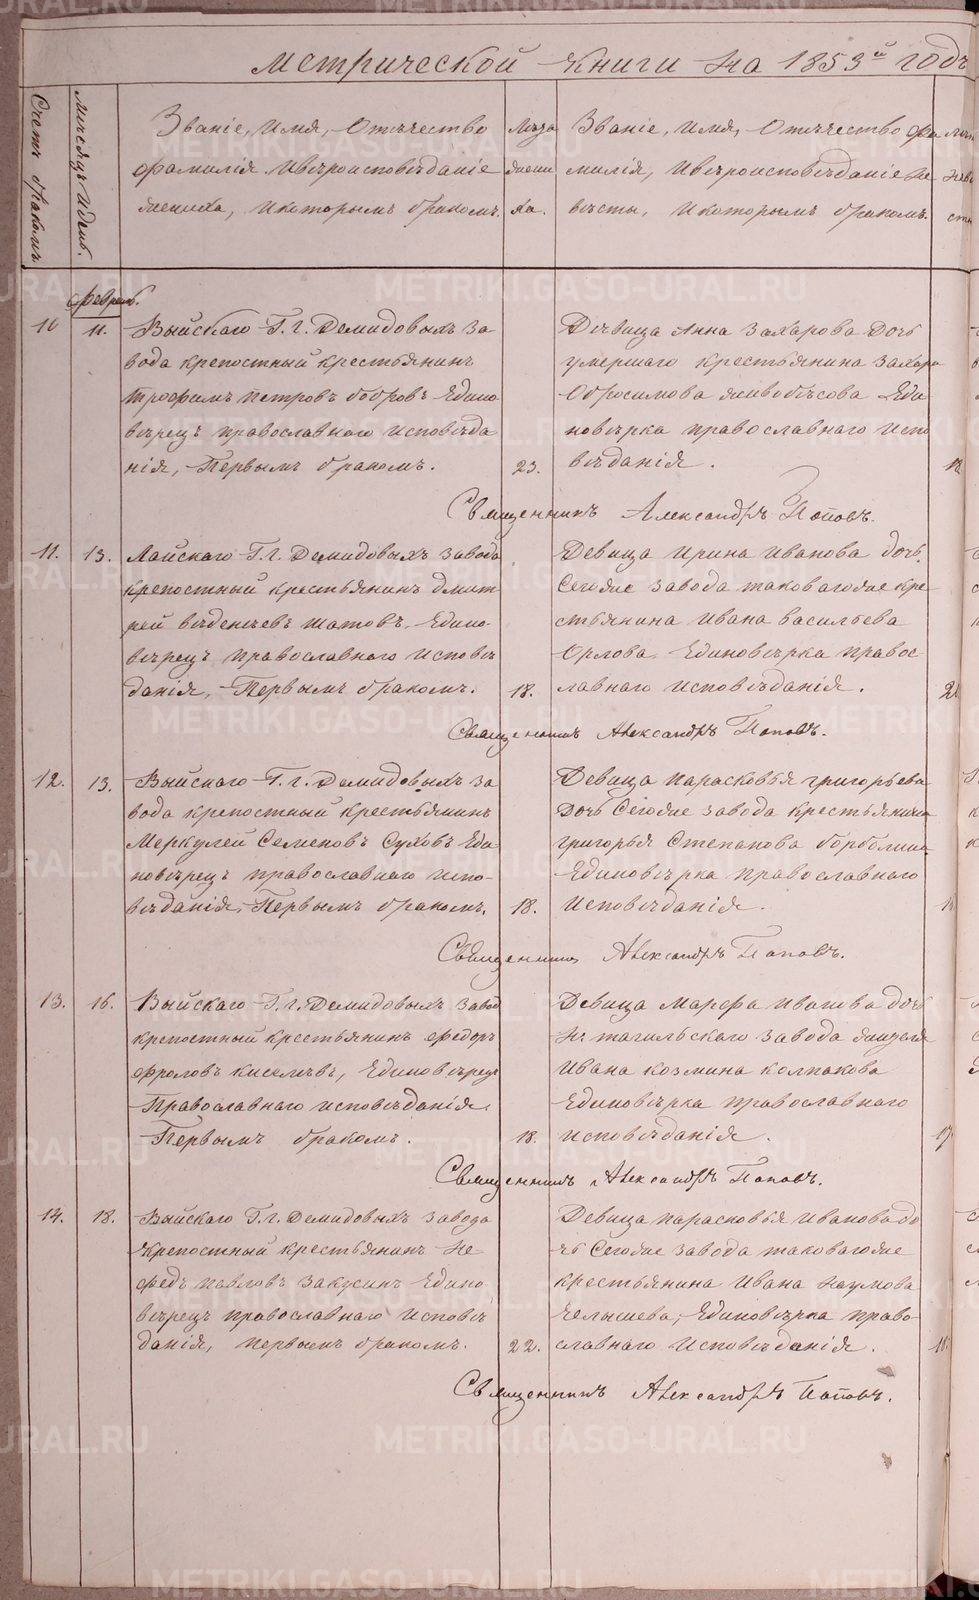 Метрической книги на 1853й годъ
Счетъ браковъ
Мѣсяцъ и день.
Званіе, имя, отечество
фамилія и вѣроисповѣданіе
жениха, и которымъ бракомъ.
Лѣта
жени
ха.
Званіе, имя, отечество фа
милія, и вѣроисповѣданіе не
вѣсты, и которымъ бракомъ.
февраль.
10
11.
Выйскаго Г. г. Демидовыхъ за
вода крепостный крестьянинъ
Трофимъ Петровъ Бобровъ Едино
вѣрецъ православнаго исповѣда
нія, Первымъ бракомъ.
23.
Дѣвица Анна Захарова Дочь
умершаго крестьянина Захара
Обросимова Живобѣсова Еди
новѣрка православнаго испо
вѣданія.
18
Священникъ Александръ Поповъ.
11.
13.
Лайскаго Г. г. Демидовыхъ завода
крепостный крестьянинъ Дмит
рей Веденѣевъ Шатовъ, Едино
вѣрецъ православнаго исповѣ
данія, Первымъ бракомъ.
18.
Девица Ирина Иванова дочь
Сегоже завода таковагоже кре
стьянина Ивана Васильева
Орлова Единовѣрка правос
лавнаго исповѣданія.
21
Священникъ Александръ Поповъ.
12.
13.
Выйскаго Г. г. Демидовыхъ за
вода крепостный крестьянинъ
Меркулей Семеновъ Суховъ Еди
новѣрецъ православнаго испо
вѣданія, Первымъ бракомъ.
18.
Девица Парасковья Григорьева
Дочь Сегоже завода крестьянина
Григорья Степанова
Единовѣрка православнаго
исповѣданія.
Священникъ Александръ Поповъ.
13.
16.
Выйскаго Г. г. Демидовыхъ завод
крепостный крестьянинъ Федоръ
Фроловъ Киселевъ, Единовѣрец
Православнаго исповѣданія
Первымъ бракомъ.
18.
Девица Марфа Иванова дочь
Н. тагильскаго завода жителя
Ивана Козмина Колпакова
Единовѣрка православнаго
исповѣданія.
17
Священникъ Александръ Поповъ.
14.
18.
Выйскаго Г. г. Демидовыхъ завода
крепостный крестьянинъ Не
федъ Павловъ Закусинъ Едино
вѣрецъ православнаго исповѣ
данія, первымъ бракомъ.
22.
Девица Парасковья Иванова до
чь Сегоже завода таковагоже
крестьянина Ивана Наумова
Челышева, Единовѣрка право
славнаго исповѣданія.
Священникъ Александръ Поповъ.
METRIKI.GASO-URAL.RU